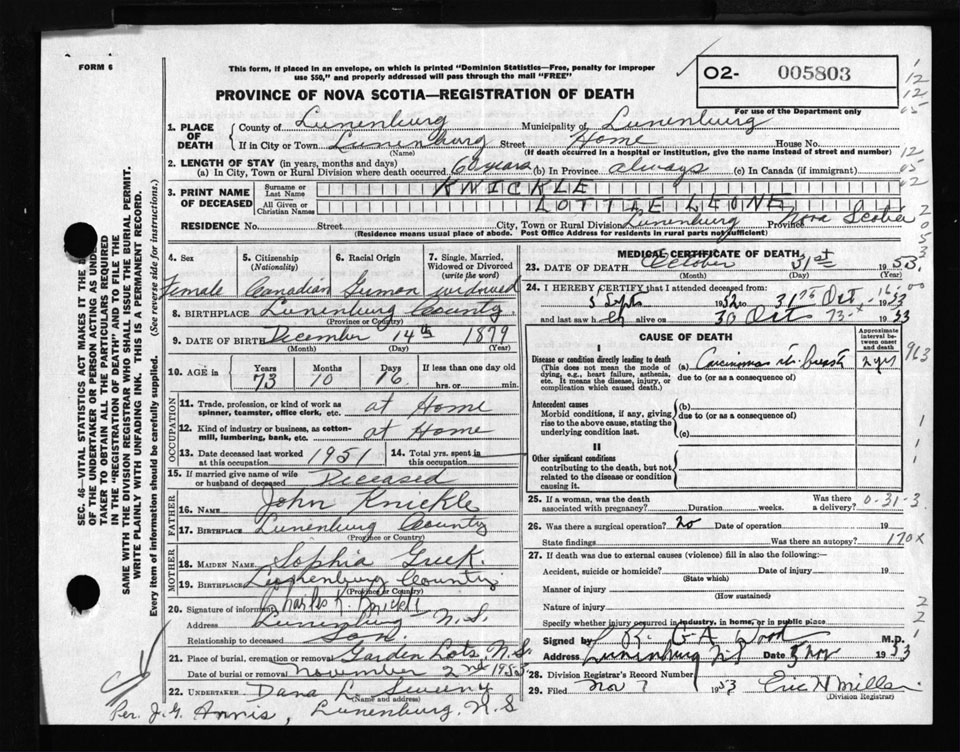 FORM 6
This form, if placed in an envelope, on which is printed "Dominion Statistics—Free, penalty for improper
use $50," and properly addressed will pass through the mail "FREE"
PROVINCE OF NOVA SCOTIA—REGISTRATION OF DEATH
O2- 005803
For use of the Department only
1. PLACE OF DEATH { County of Lunenburg Municipality of Lunenburg
If in City or Town Lunenburg Street Home House No.
(Name) (If death occurred in a hospital or institution, give the name instead of street and number)
2. LENGTH OF STAY (in years, months and days)
(a) In City, Town or Rural Division where death occurred 60 years (b) In Province always (c) In Canada (if immigrant)
3. PRINT NAME OF DECEASED { Surname or Last Name KNICKLE
All Given or Christian Names LOTTIE LEONE
RESIDENCE No. Street City, Town or Rural Division Lunenburg Province Nova Scotia
(Residence means usual place of abode. Post Office Address for residents in rural parts not sufficient)
4. Sex Female
5. Citizenship (Nationality) Canadian
6. Racial Origin German
7. Single, Married, Widowed or Divorced (write the word) widowed
8. BIRTHPLACE Lunenburg County
(Province or Country)
9. DATE OF BIRTH December 14th 1879
(Month) (Day) (Year)
10. AGE in { Years 73 Months 10 Days 16 If less than one day old
hrs. or min.
OCCUPATION
11. Trade, profession, or kind of work as spinner, teamster, office clerk, etc. at Home
12. Kind of industry or business, as cotton-mill, lumbering, bank, etc. at Home
13. Date deceased last worked at this occupation 1951 14. Total yrs. spent in this occupation
15. If married give name of wife or husband of deceased Deceased
FATHER
16. NAME John Knickle
17. BIRTHPLACE Lunenburg County
(Province or Country)
MOTHER
18. MAIDEN NAME Sophia Greek
19. BIRTHPLACE Lunenburg County
(Province or Country)
20. Signature of informant Charles Knickle
Address Lunenburg N.S.
Relationship to deceased Son
21. Place of burial, cremation or removal Garden Lots N.S.
Date of burial or removal November 2nd 195
22. UNDERTAKER Dana L. Sweeny
(Name and address)
Per. J. G. Annis, Lunenburg. N.S
MEDICAL CERTIFICATE OF DEATH
23. DATE OF DEATH October 31st 1953.
(Month) (Day) (Year)
24. I HEREBY CERTIFY that I attended deceased from:
3 Sept 1952 to 31st Oct 1953
and last saw her alive on 30 Oct 1953
CAUSE OF DEATH
Approximate interval between onset and death
I
Disease or condition directly leading to death
(This does not mean the mode of dying, e.g., heart failure, asthenia, etc. It means the disease, injury, or complication which caused death.)
(a) Carcinoma rt. breast 2 yrs
due to (or as a consequence of)
Antecedent causes
Morbid conditions, if any, giving rise to the above cause, stating the underlying condition last.
(b)
due to (or as a consequence of)
(c)
II
Other significant conditions
contributing to the death, but not related to the disease or condition causing it.
25. If a woman, was the death associated with pregnancy? Duration weeks. Was there a delivery? 0-31-3
26. Was there a surgical operation? no Date of operation 19
State findings Was there an autopsy? 170X
27. If death was due to external causes (violence) fill in also the following:—
Accident, suicide or homicide? Date of injury 19
(State which)
Manner of injury
(How sustained)
Nature of injury
Specify whether injury occurred in industry, in home, or in public place
Signed by G A Wood M.D.
Address Lunenburg NS Date 3 Nov 1953
28. Division Registrar's Record No.
29. Filed Nov 7 1953 Eric H Mills
(Division Registrar)
963
SEC. 46—VITAL STATISTICS ACT MAKES IT THE
OF THE UNDERTAKER OR PERSON ACTING AS UNDER-
TAKER TO OBTAIN ALL THE PARTICULARS REQUIRED
IN THE "REGISTRATION OF DEATH" AND TO FILE THE
SAME WITH THE DIVISION REGISTRAR WHO SHALL ISSUE THE BURIAL PERMIT.
WRITE PLAINLY WITH UNFADING INK. THIS IS A PERMANENT RECORD.
Every item of information should be carefully supplied. (See reverse side for instructions.)